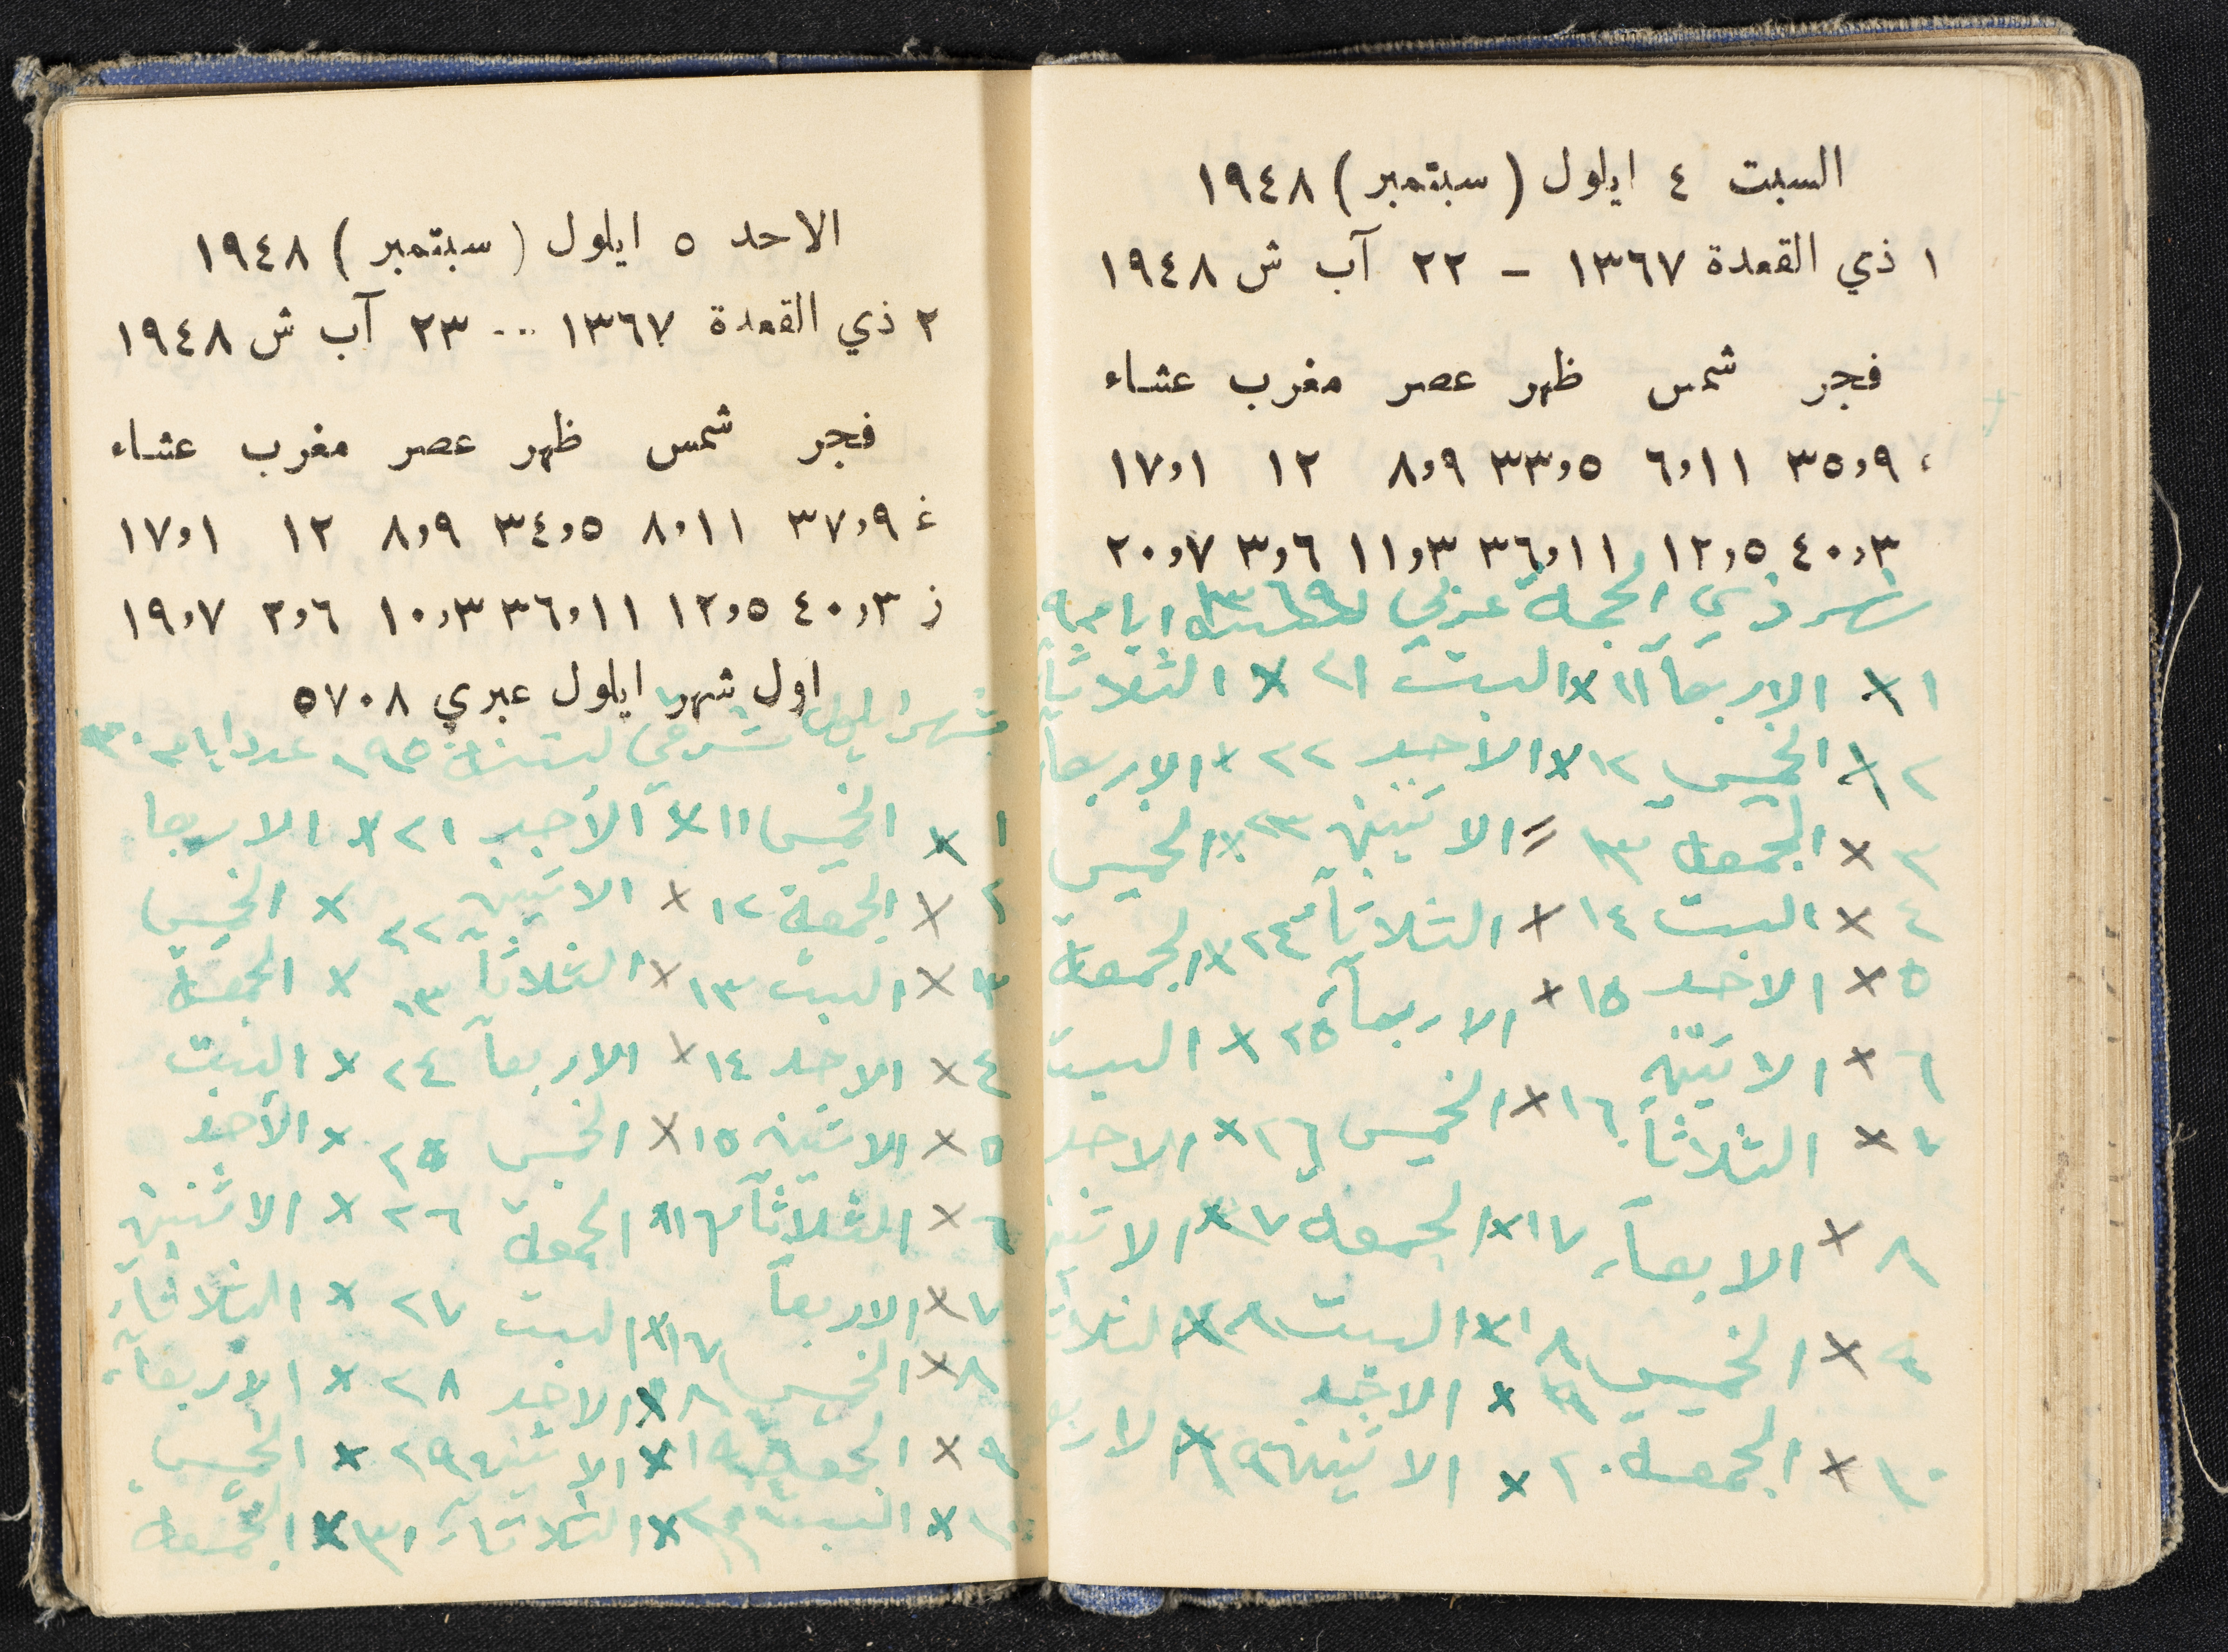 السبت ٤ ايلول (سبتمبر) ١٩٤٨
١ ذي القعدة ١٣٦٧ – ٢٢ آب ش ١٩٤٨
فجر شمس ظهر عصر مغرب عشاء
٣٥,٩ ٦,١١ ٣٣,٥ ٨,٩ ١٢ ١٧,١
٤٠,٣ ١٢,٥ ٣٦,١١ ١١,٣ ٣,٦ ٢٠,٧
شهر ذي الحجة عربي ايام
١ × الاربعاً ١١ × السبت ٢١ × الثلاثاً
٢ × الخميس ١٢ × الاحد ٢٢ × الاربعا
٣ × الجمعه ١٣ = الاثنين ٢٣ × الخميس
٤ × السبت ١٤ × الثلاثاً ٢٤ × الجمعة
٥ × الاحد ١٥ × الاربعاً ٢٥ × السبت
٦ × الاثنين ١٦ × الخميس ٢٦ × الاحد
٧ × الثلاثاً ١٧ × الجمعه ٢٧ × الاثنين
٨ × الابعاً ١٨ × السبت ٢٨ × الثلاثا
٩ × الخميس ١٩ × الاحد
١٠ × الجمعه ٢٠ × الاثنين
الاحد ٥ ايلول (سبتمبر) ١٩٤٨
٢ ذي القعدة ١٣٦٧ -- ٢٣ آب ش ١٩٤٨
فجر شمس ظهر عصر مغرب عشاء
غ ٣٧,٩ ٨,١١ ٣٤,٥ ٨,٩ ١٢ ١٧,١
ز ٤٠,٣ ١٢,٥ ٣٦,١١ ١٠,٣ ٢,٦ ١٩,٧
اول شهر ايلول عبري ٥٧٠٨
شهر ايلول شرقي لسنة عدد ايام ٣٠
١ × الخميس ١١ × الأحد ٢١ × الاربعا
٢ × الجمعة ١٢ × الاثنين ٢٢ × الخميس
٣ × السبت ١٣ × الثلاثاً ١٣ × الجمعة
٤ × الاحد ١٤ × الاربعاً ٢٤ × السبت
٥ × الاثنين ١٥ × الخميس ٢٥ × الأحد
٦ × الثلاثاً ١٦ × الجمعة ٢٦ × الاثنين
٧ × الاربعاً ١٧ × السبت ٢٧ × الثلاثاً
٨ × الخميس ١٨ × الاحد ٢٨ × الاربعاً
٩ × الجمعه × الاثنين ٢٩ × الخميس
١٠ × السبت × الثلاثاً ٣١ × الجمعه